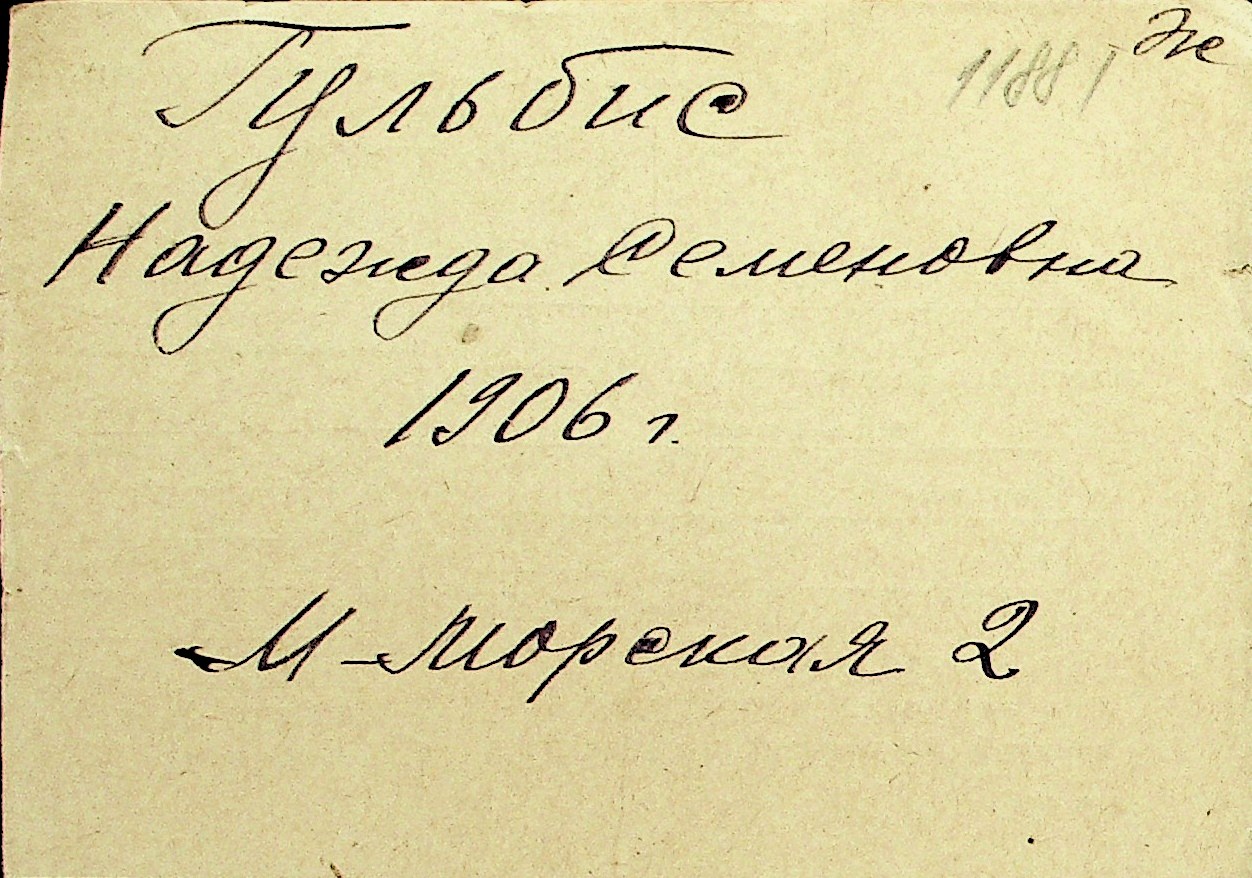 Гульбис
1188 Ж
Надежда Семеновна
1906 г.
М-Морская 2